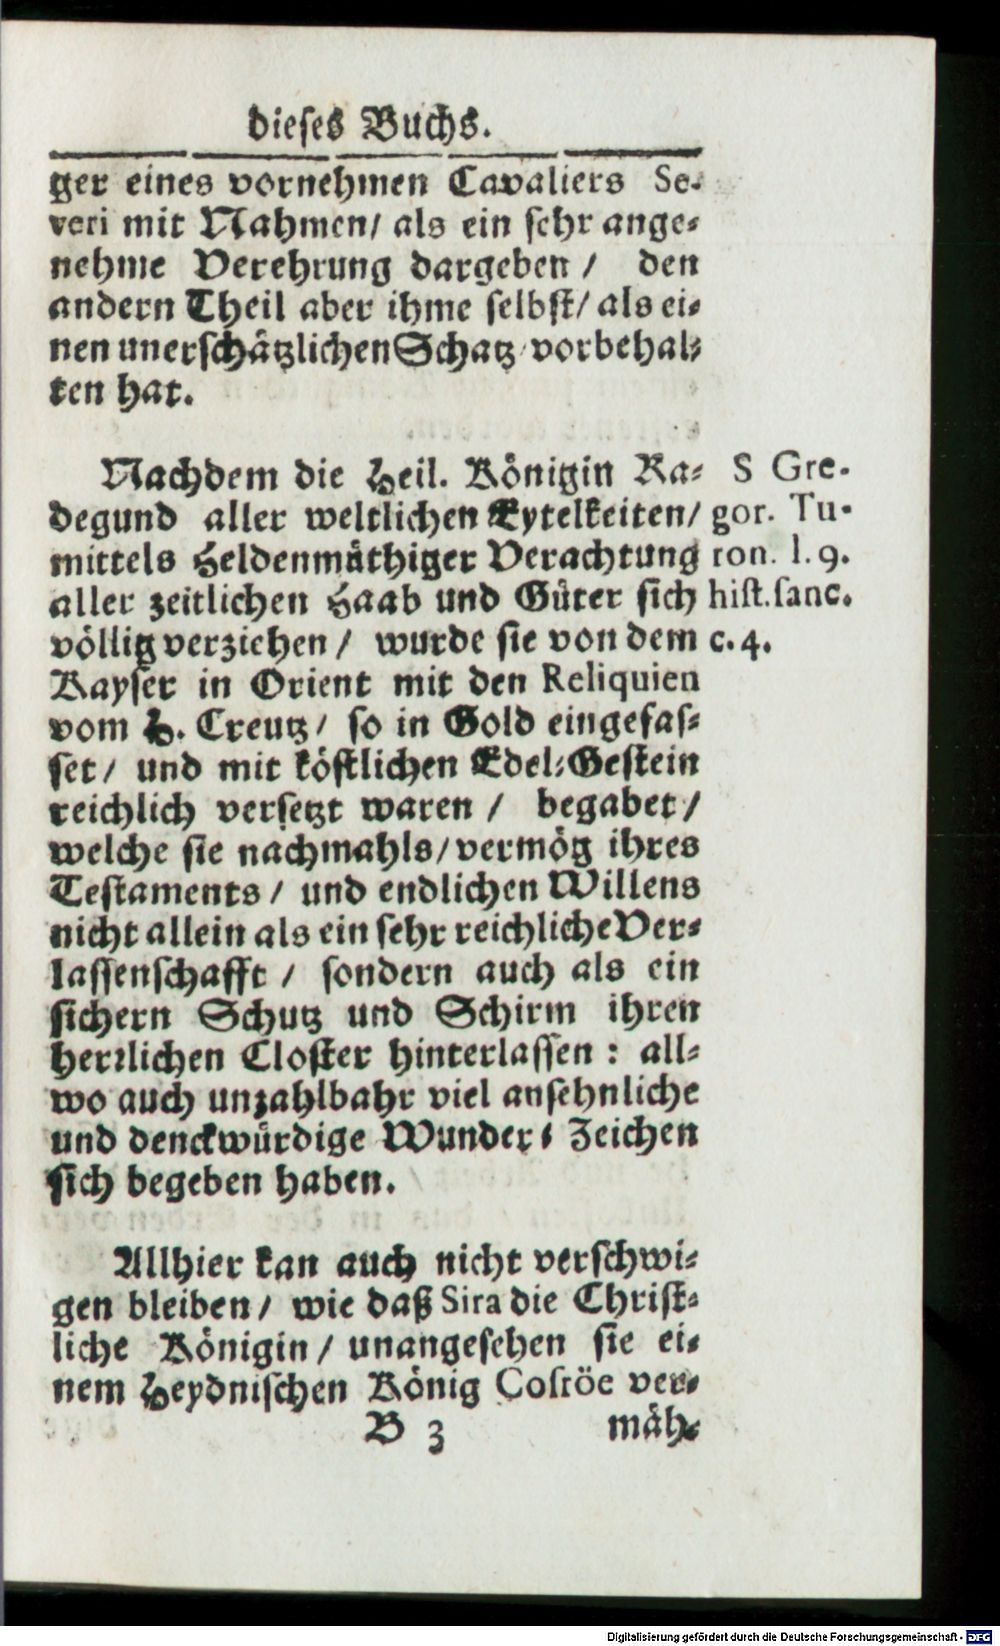 dieses Buchs.
ger eines vornehmen Cavaliers Se-
veri mit Nahmen/ als ein sehr ange-
nehme Verehrung dargeben / den
andern Theil aber ihme selbst/ als ei-
nen unerschätzlichen Schatz vorbehal-
ten hat.
Nachdem die Heil. Königin Ra-
degund aller weltlichen Eytelkeiten/
mittels Heldenmüthiger Verachtung
aller zeitlichen Haab und Güter sich
völlig verziehen / wurde sie von dem
Kayser in Orient mit den Reliquien
vom H. Creutz/ so in Gold eingefas-
set / und mit köstlichen Edel-Gestein
reichlich versetzt waren / begabet/
welche sie nachmahls/ vermög ihres
Testaments / und endlichen Willens
nicht allein als ein sehr reichliche Ver-
lassenschafft / sondern auch als ein
sichern Schutz und Schirm ihren
herrlichen Closter hinterlassen : all-
wo auch unzahlbahr viel ansehnliche
und denckwürdige Wunder-Zeichen
sich begeben haben.
S Gre-
gor. Tu-
ron. l. 9.
hist. sanc.
c. 4.
Allhier kan auch nicht verschwi-
gen bleiben/ wie daß Sira die Christ-
liche Königin / unangesehen sie ei-
nem Heydnischen König Cosröe ver-
B 3 mäh-
Digitalisierung gefördert durch die Deutsche Forschungsgemeinschaft - DFG